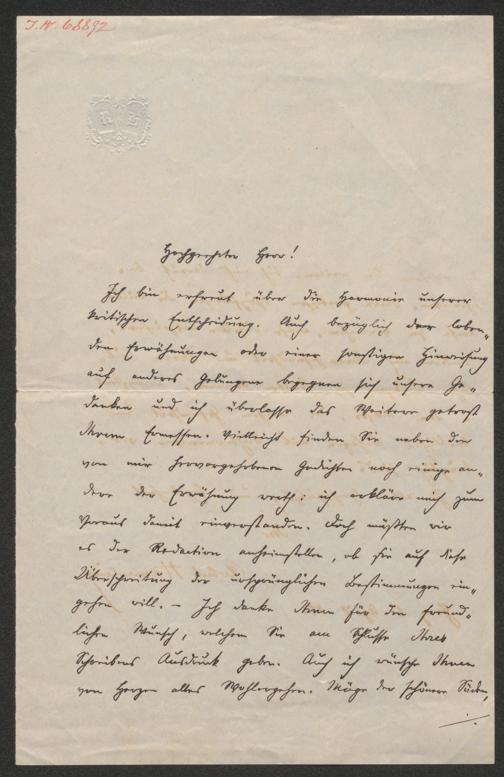 I.N. 68892
Hochgeehrter Herr!
Ich bin erfreut über die Harmonie unserer
kritischen Entscheidung. Auch bezüglich der loben-
den Erwähnungen oder einer sonstigen Hinweisung
auf anderes Gelungene begegnen sich unsere Ge-
danken und ich überlasse das Weitere getrost
Ihrem Ermessen. Vielleicht finden Sie neben den
von mir hervorgehobenen Gedichten noch einige an-
dere der Erwähnung werth; ich erkläre mich zum
Voraus damit einverstanden. Doch müßten wir
es der Redaction anheimstellen, ob sie auf diese
Überschreitung der ursprünglichen Bestimmungen ein-
gehen will. – Ich danke Ihnen für den freund-
lichen Wunsch, welchem Sie am Schlusse Ihres
Schreibens Ausdruck geben. Auch ich wünsche Ihnen
von Herzen alles Wohlergehen. Möge der schönere Süden,